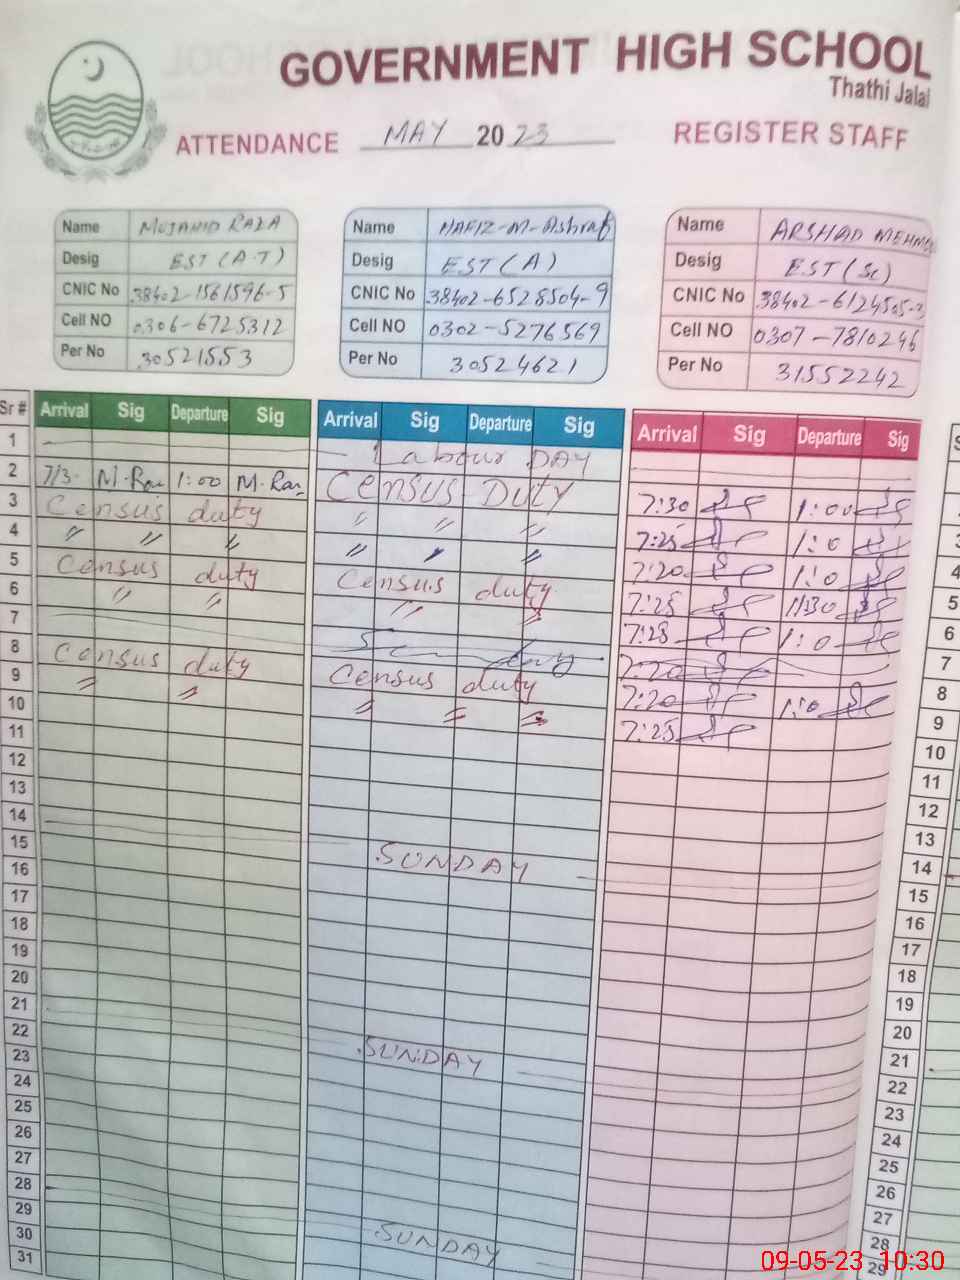 GOVERNMENT HIGH SCHOOL
Thathi Jalal
ATTENDANCE MAY 2023 REGISTER STAFF
Name MUJAHID RAZA
Desig EST (A.T)
CNIC No 38402-1561596-5
Cell NO 0306-6725312
Per No 30521553
Name HAFIZ-M-Ashraf
Desig EST (A)
CNIC No 38402-6528504-9
Cell NO 0302-5276569
Per No 30524621
Name ARSHAD MEHM
Desig EST (Sc)
CNIC No 38402-6124505-3
Cell NO 0307-7810246
Per No 31552242
Sr # Arrival Sig Departure Sig Arrival Sig Departure Sig Arrival Sig Departure Sig
1 Labour DAY
2 7/3- M.Raz 1:00 M.Raz Census DUTY 7:30 1:00
3 Census duty " " " 7:25 1:0
4 " " " " " " 7:20 1:0
5 Census duty Census duty 7:25 11:30
6 " " " " 7:25 1:0
7 Sunday 7:20
8 Census duty Census duty 7:20 1:0
9 " " " " " 7:25
10
11
12
13
14 SUNDAY
15
16
17
18
19
20
21 SUNDAY
22
23
24
25
26
27
28 SUNDAY
29
30
31
3
4
5
6
7
8
9
10
11
12
13
14
15
16
17
18
19
20
21
22
23
24
25
26
27
28
29
09-05-23 10:30